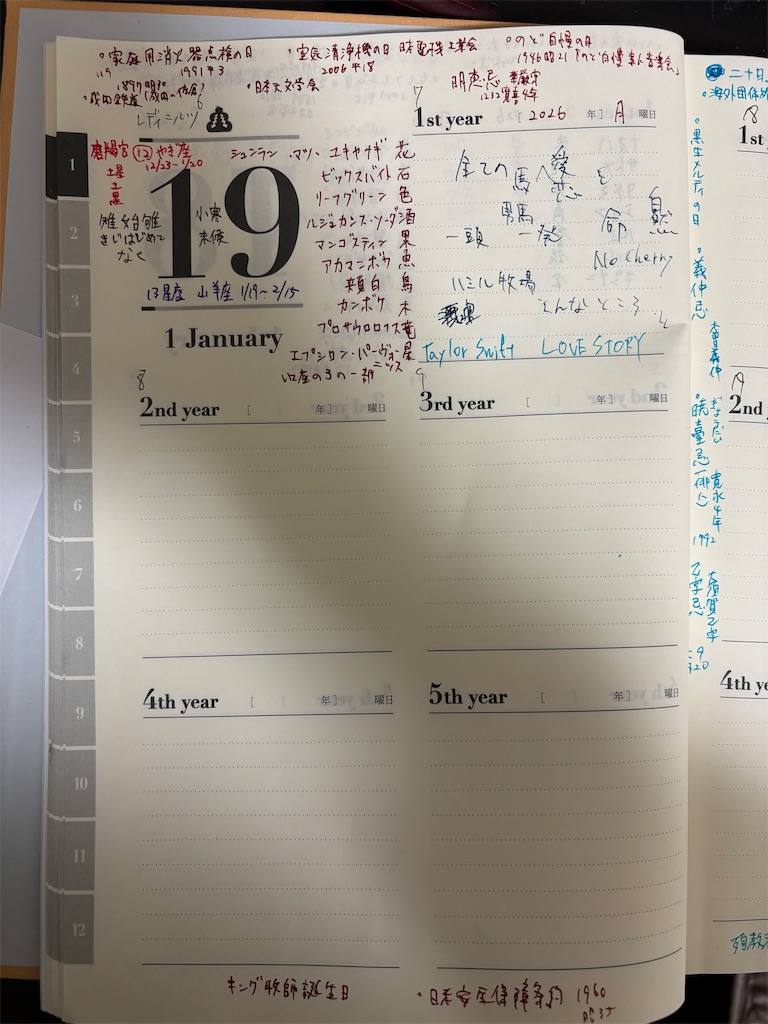 。家庭用消火器点検の日
119 1991 平3
。室内清浄機の日
2006 平18
。のど自慢の日
1946 昭21『のど自慢素人音楽会』
1897 明30
・成田鉄道(成田〜佐倉)
・日本天文学会
明恵忌 華厳宗
1232
6
レディニルツ
磨羯宮 ⑫ やぎ座
12/23〜1/20
土星
黒
雉始雊
きじはじめて
なく
19
小寒
末候
13星座 山羊座 1/19〜2/15
1 January
シュンラン・マツ・ユキヤナギ 花
ビックスバイト 石
リーフグリーン 色
ルジェカシス・ソーダ 酒
マンゴスティン 果
アカマンボウ 魚
頬白 鳥
カンボケ 木
プロサウロロフス 竜
エプシロン・ 星
7
1st year 2026 年] 月 曜日
全ての 馬へ 愛 と
恋
男馬
一頭 一発 命
No cherry
ハミル牧場
こんなところ
と
Taylor Swift LOVE STORY
8
2nd year [ 年] 曜日
9
3rd year [ 年] 曜日
4th year [ 年] 曜日
5th year [ 年] 曜日
1
2
3
4
5
6
7
8
9
10
11
12
キング牧師誕生日
・日米安全保障条約 1960
昭35
二十日
・海外団体旅
8
1st
。黒生メルディの日
。義仲忌
木曽義仲
9
2nd
ぎょうだい
・暁臺忌(俳人)
寛永4年
1992
乙字忌
大須賀乙字
4th ye
殉教